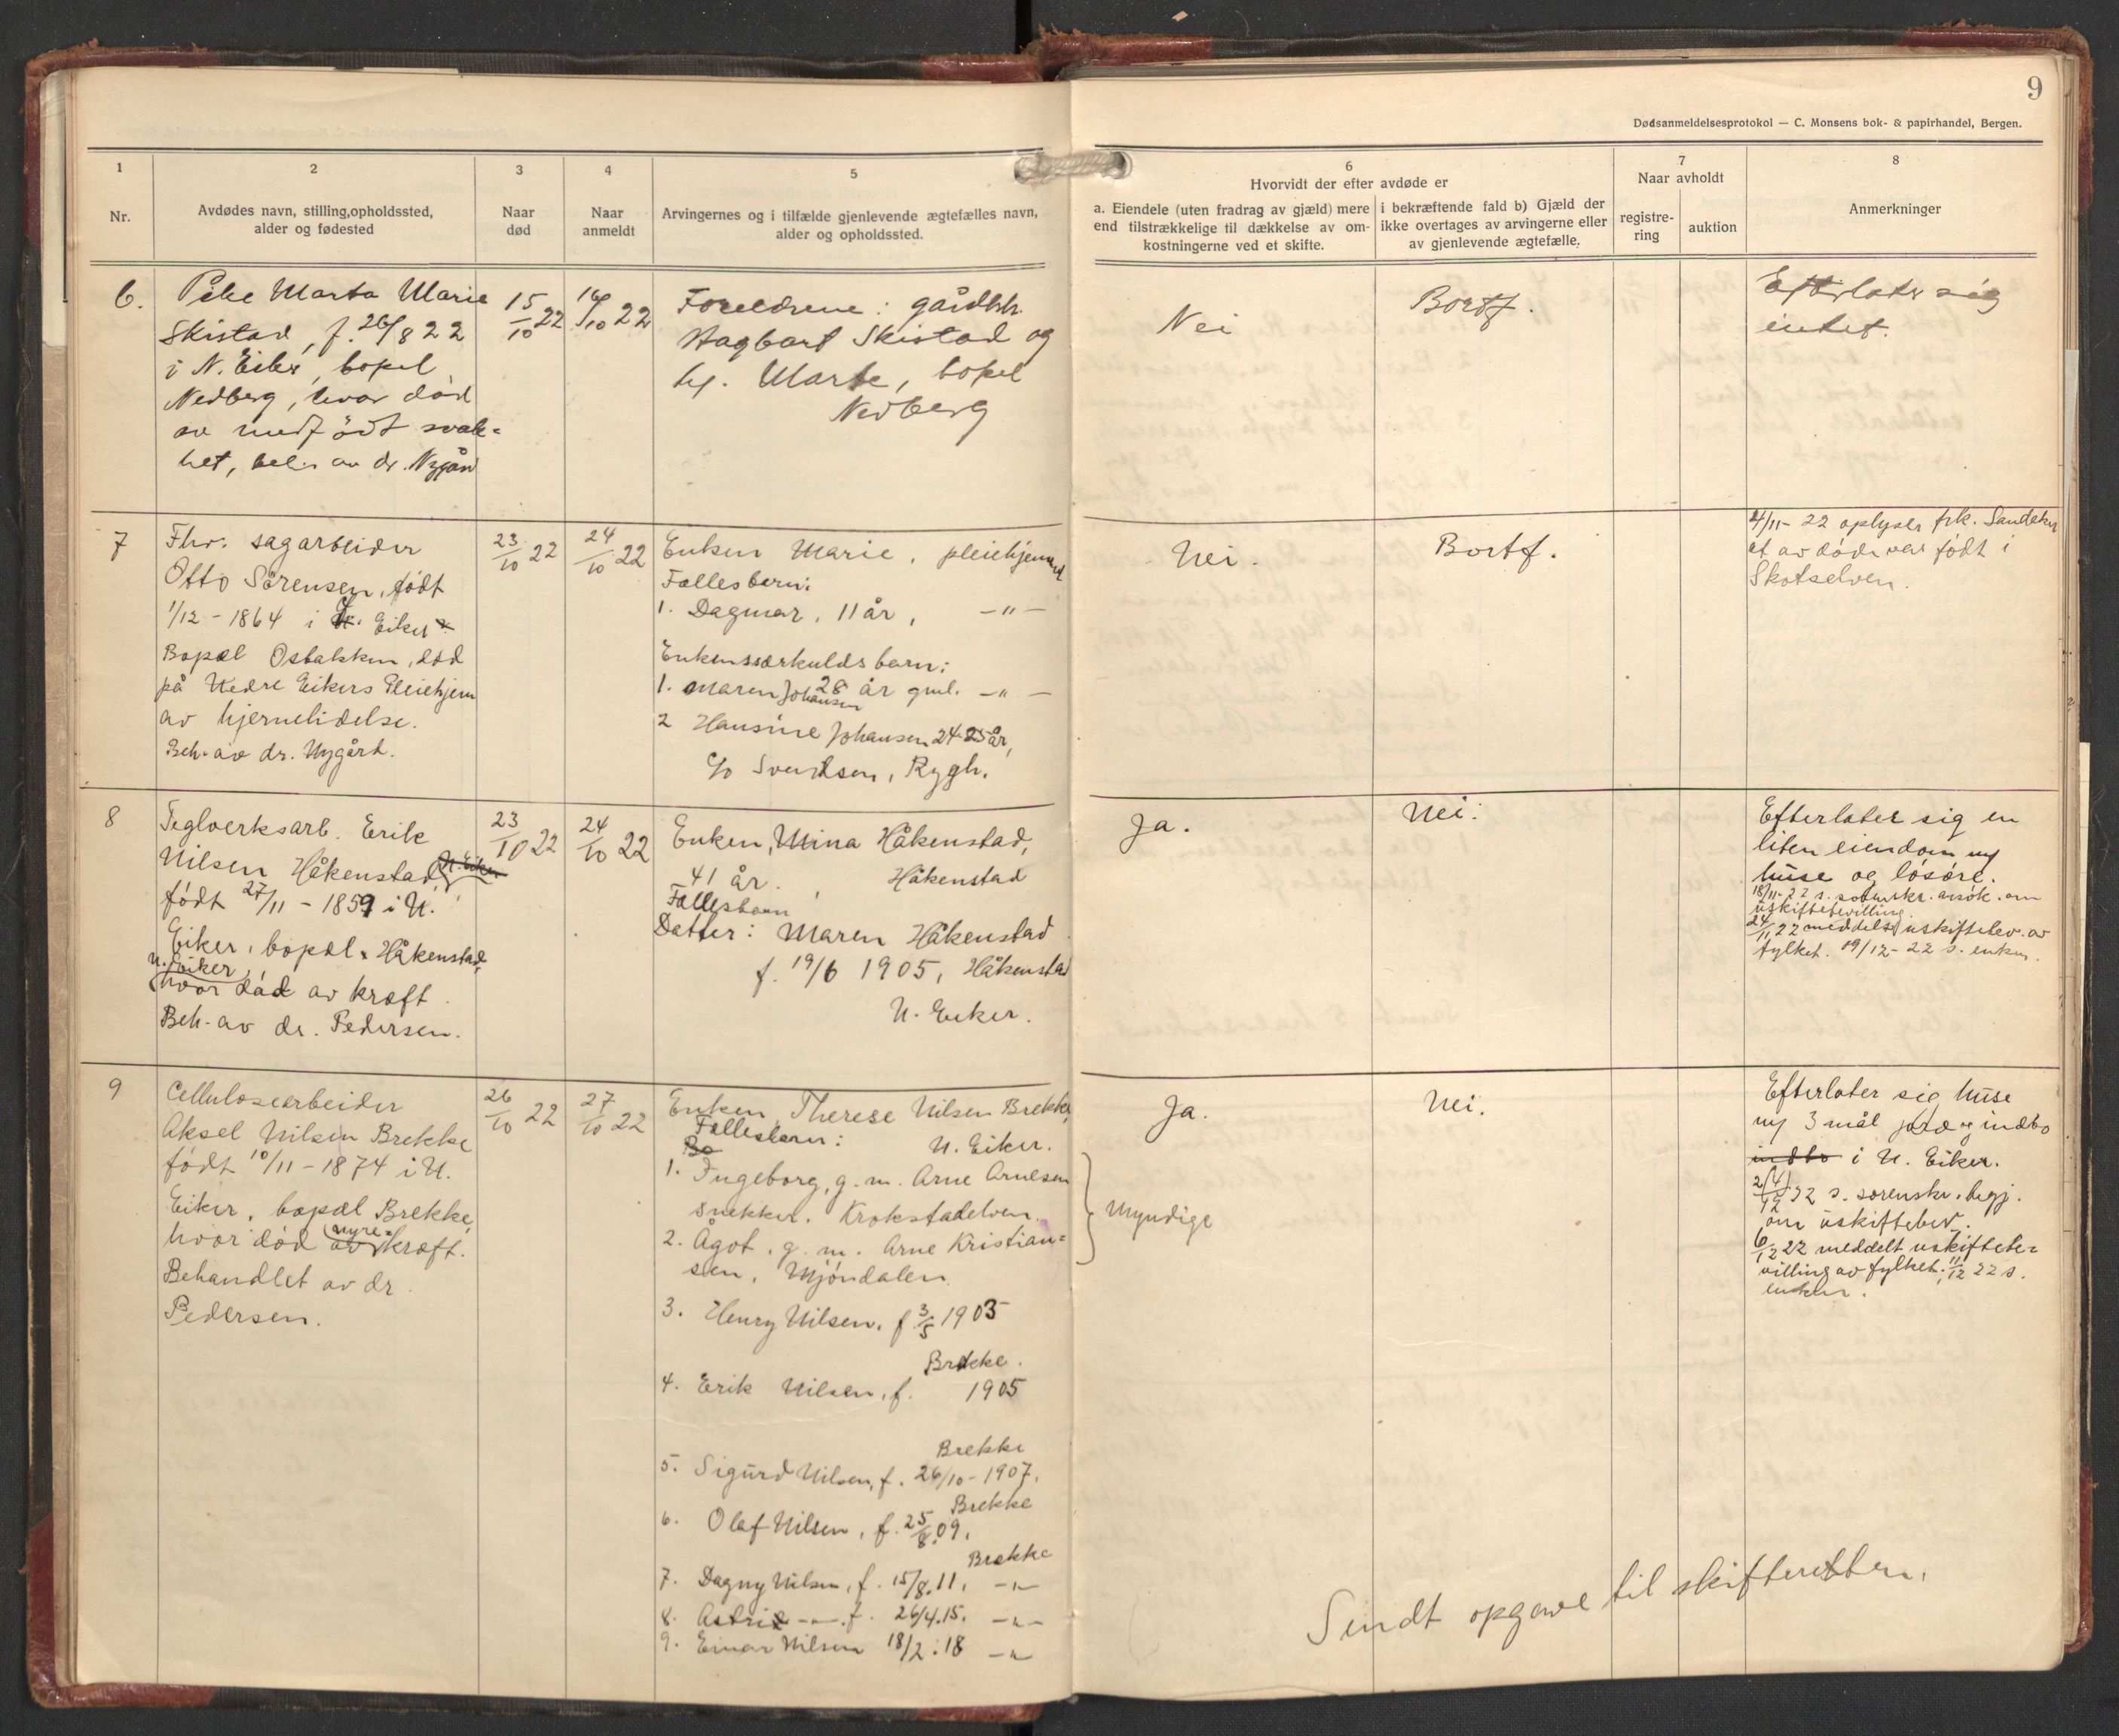 9
Dødsanmeldelsesprotokol — C. Monsens bok- & papirhandel, Bergen.
1
Nr.
2
Avdødes navn, stilling, opholdssted,
alder og fødested
3
Naar
død
4
Naar
anmeldt
5
Arvingernes og i tilfælde gjenlevende ægtefælles navn,
alder og opholdssted.
6
Hvorvidt der efter avdøde er
a. Eiendele (uten fradrag av gjæld) mere
end tilstrækkelige til dækkelse av om-
kostningerne ved et skifte.
i bekræftende fald b) Gjæld der
ikke overtages av arvingerne eller
av gjenlevende ægtefælle.
7
Naar avholdt
registre-
ring
auktion
8
Anmerkninger
6.
Pike Marta Marie
Skistad, f. 26/8 22
i N. Eiker, bopel
Nedberg, hvor död
av medfödt svak=
het, beh. av dr. Nygård
15/10 22
16/10 22
Foreldrene: gårdbr.
Hagbart Skistad og
h. Marte, bopel
Nedberg
Nei
Bortf.
Efterlater sig
intet.
7
Fhv. sagarbeider
Otto Sörensen, født
1/12 - 1864 i Ö. Eiker
Bopæl Osbakken, död
på Nedre Eikers Pleiehjem
av hjernelidelse.
Beh. av dr. Nygård.
23/10 22
24/10 22
Enken Marie, pleiehjemmet
Fællesbarn:
1. Dagmar, 11 år, —"—
Enkens særkuldsbarn:
1. Maren Johansen 28 år gml. —"—
2 Hansine Johansen 24-25 år,
c/o Svendsen, Rygh.
Nei.
Bortf.
4/11- 22 oplyser frk. Sandaker
at avdøde var født i
Skotselven.
8
Teglverksarb. Erik
Nilsen Håkenstad, N. Eiker
født 27/11 - 1859 i N.
Eiker, bopæl Håkenstad,
N. Eiker,
hvor död av kræft.
Beh. av dr. Pedersen.
23/10 22
24/10 22
Enken, Mina Håkenstad,
41 år. Håkenstad
Fællesbarn
Datter: Maren Håkenstad
f. 19/6 1905, Håkenstad
N. Eiker.
Ja.
Nei.
Efterlater sig en
liten eiendom m/
huse og løsøre.
18/11-22 s. sorenskr. ansøk. om
uskiftebevilling.
24/11 22 meddelt uskiftebev. av
fylket. 19/12- 22 s. enken.
9
Cellulosearbeider
Aksel Nilsen Brekke
født 10/11 - 1874 i N.
Eiker, bopæl Brekke,
hvor död av nyre=kræft.
Behandlet av dr.
Pedersen.
26/10 22
27/10 22
Enken, Therese Nilsen Brekke,
Fællesbarn: N. Eiker.
Bo
1. Ingeborg, g. m. Arne Arnesen
snekker. Krokstadelven.
2. Ågot, g. m. Arne Kristian=
sen, Mjöndalen.
Myndige
3. Henry Nilsen, f. 3/5 1903
Brekke.
4. Erik Nilsen, f. 1905
Brekke
5. Sigurd Nilsen, f. 26/10 - 1907.
Brekke
6. Olaf Nilsen, f. 25/8.09.
Brekke
7. Dagny Nilsen, f. 15/8.11. —"—
8. Astrid —"— f. 26/4.15. —"—
9. Einar Nilsen 18/2.18 —"—
Ja.
Nei.
Efterlater sig huse
m/ 3 mål jord og indbo
indbo i N. Eiker.
2(4)/12 22 s. sorenskr. begj.
om uskiftebev.
6/12 22 meddelt uskiftebe=
villing av fylket. 11/12 22 s.
enken.
Sendt opgave til skifteretten.